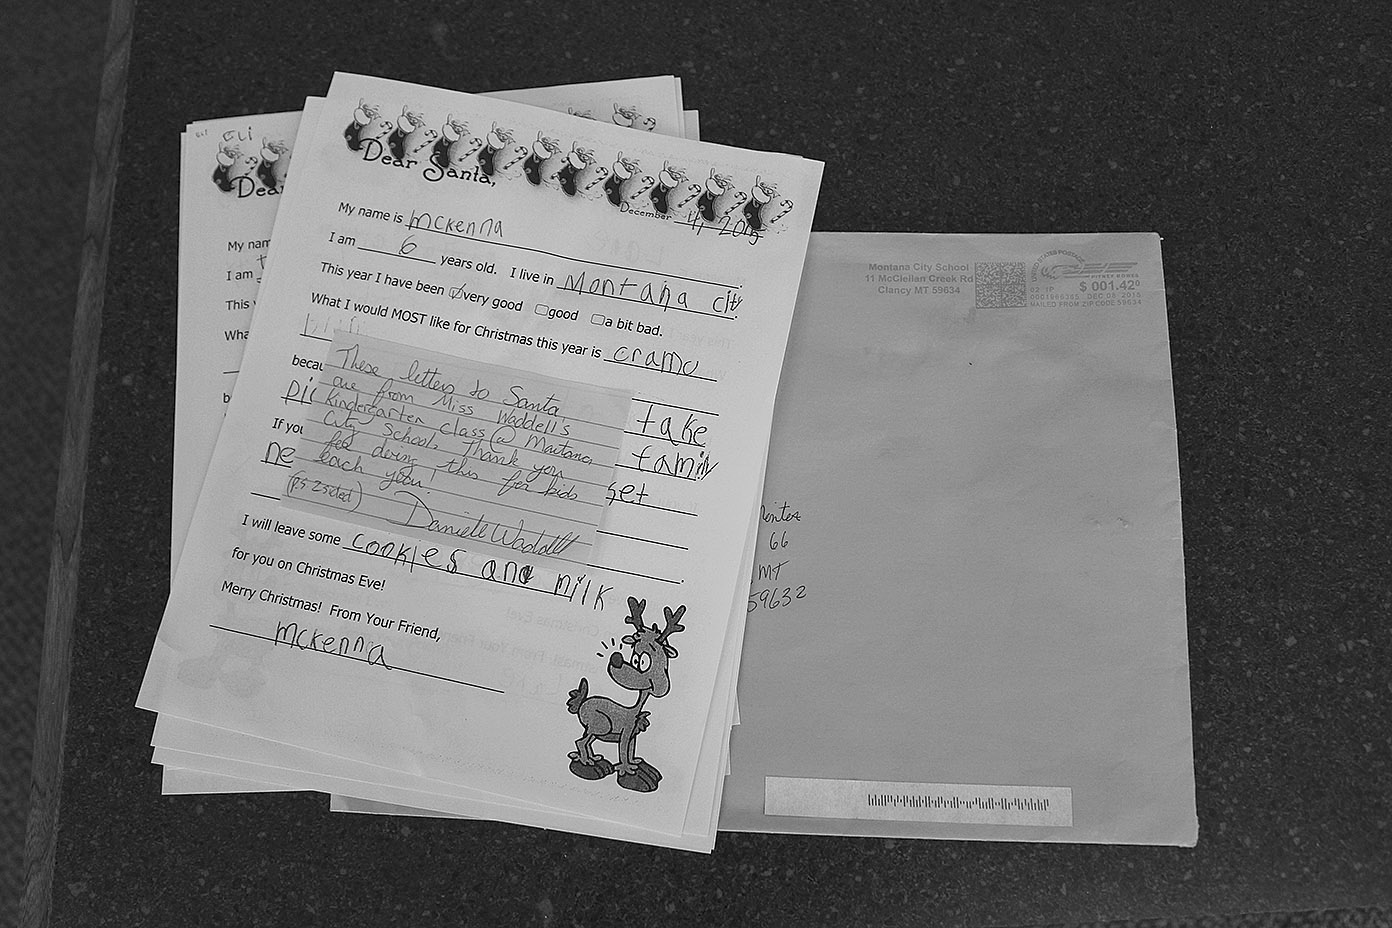 Eli
Dear
My nam
I am
This y
Wha
Dear Santa,
December 4, 2015
My name is mckenna
I am 6 years old. I live in Montana city.
This year I have been very good good a bit bad.
What I would MOST like for Christmas this year is
becau take
pic
If you family
ne set
These letters to Santa
are from Miss Waddell's
Kindergarten class @ Montana
City School. Thank you
for doing this for kids
each year!
(PS 2 sets!)
Danielle Waddell
I will leave some cookies and milk
for you on Christmas Eve!
Merry Christmas! From Your Friend,
mckenna
Montana City School
11 McClellan Creek Rd
Clancy MT 59634
UNITED STATES POSTAGE
PITNEY BOWES
02 1P $ 001.42⁰
0001966365 DEC 08 2015
MAILED FROM ZIP CODE 59634
66
MT
59632